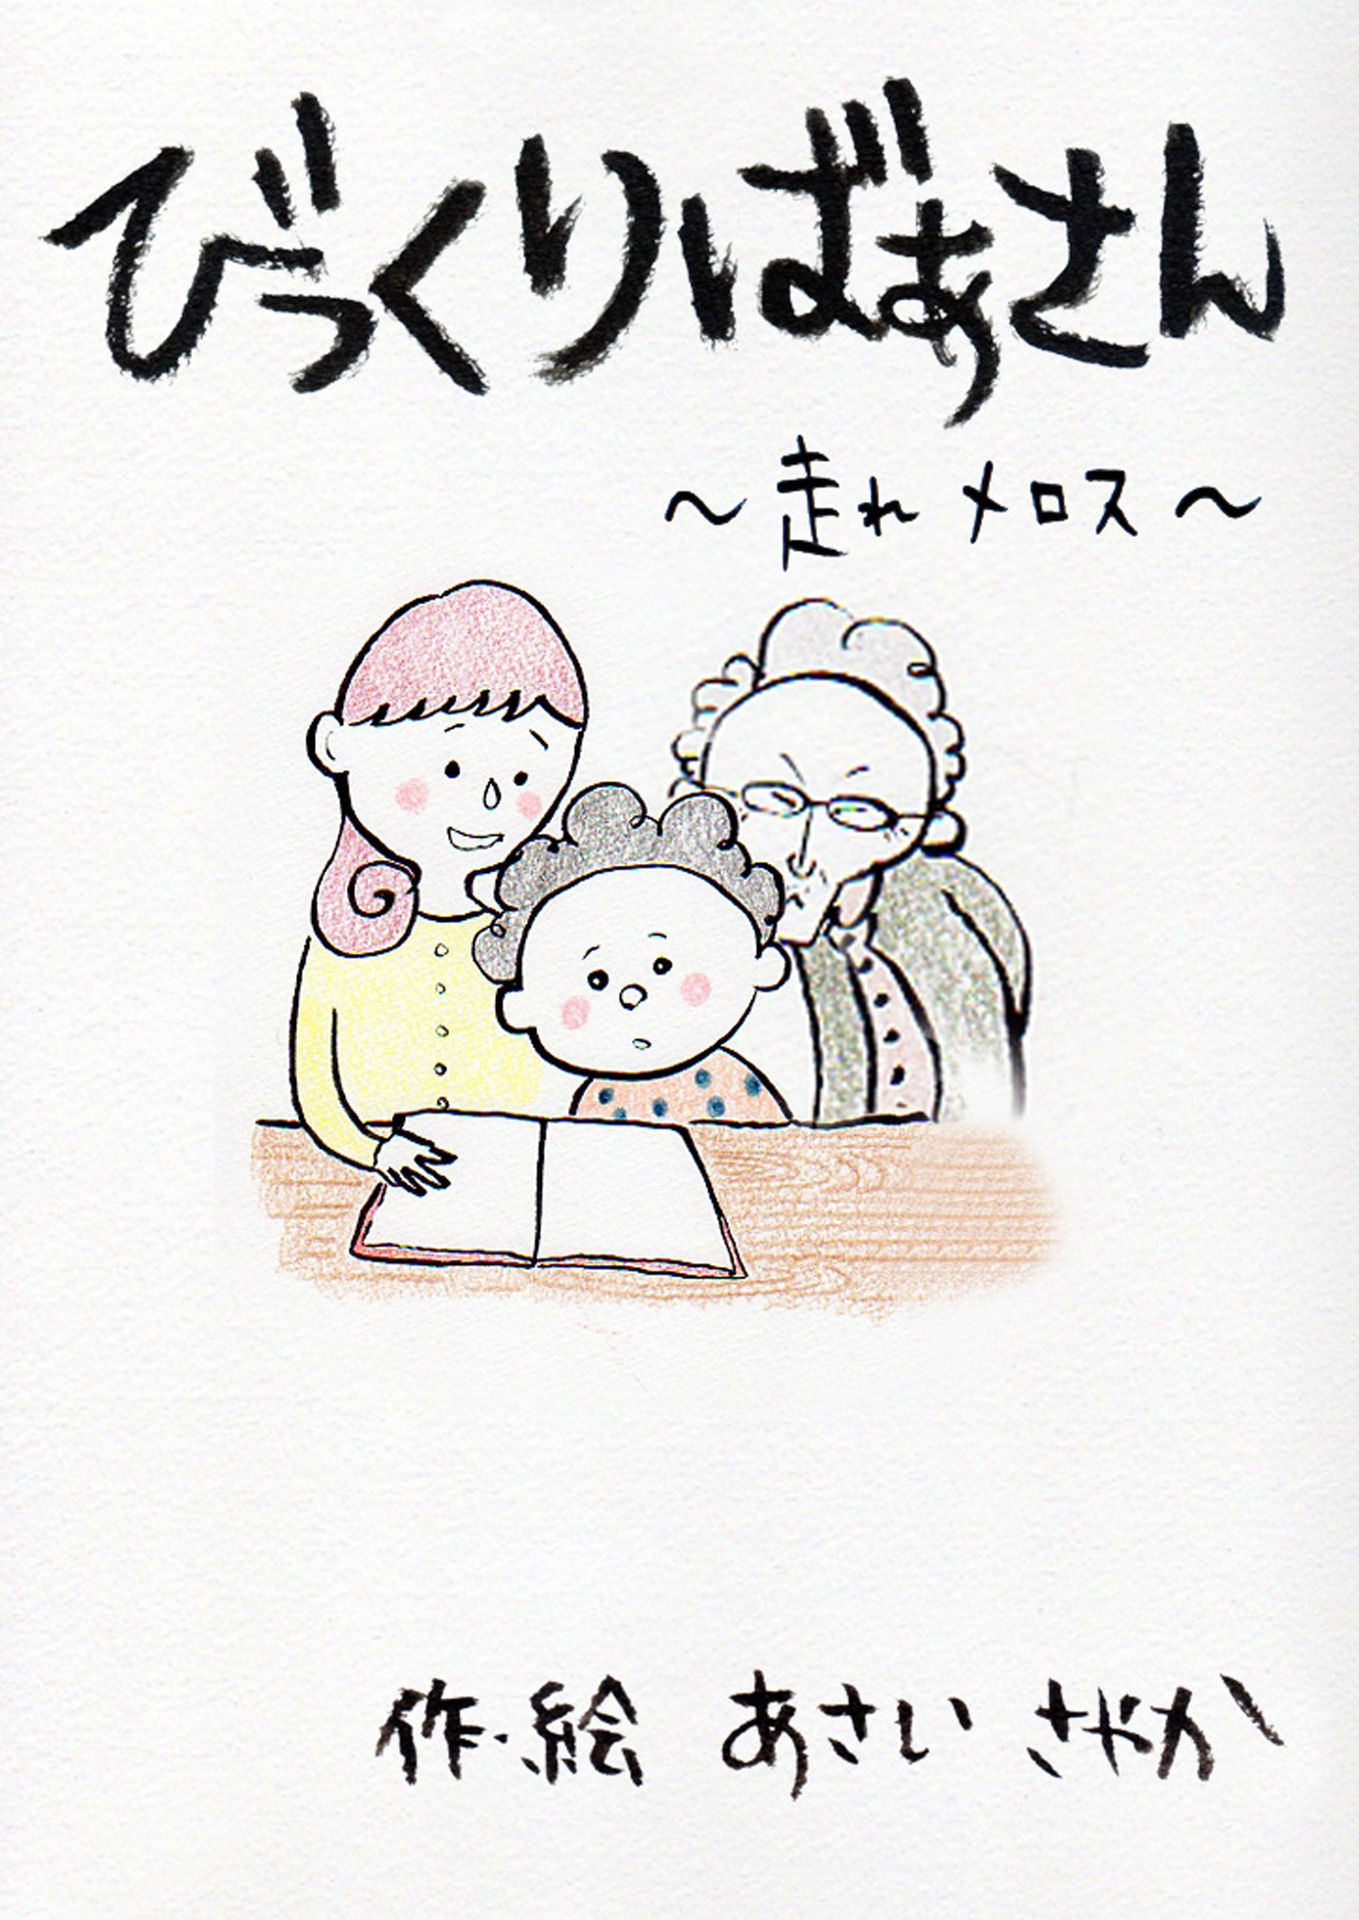 びっくりばあさん
〜走れメロス〜
作・絵 あさい さやか